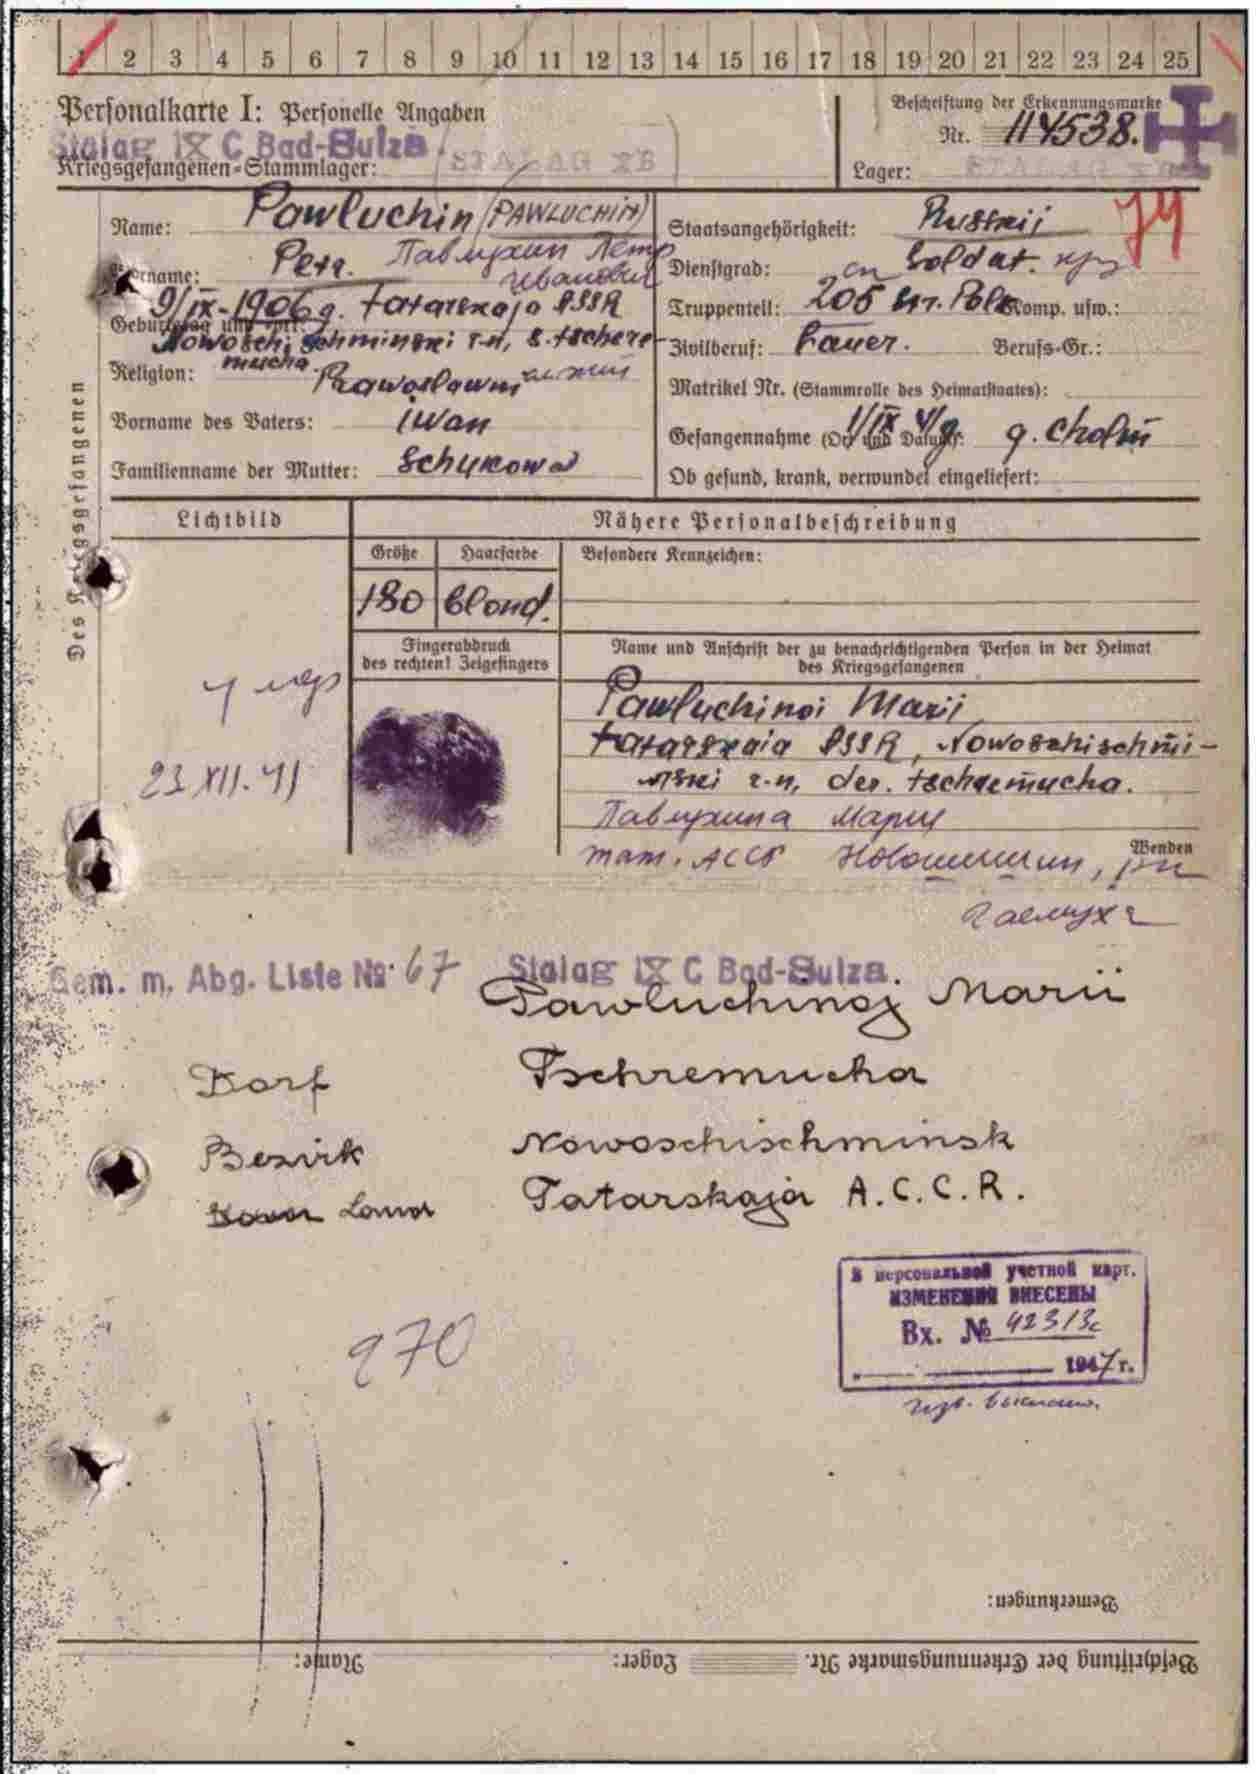 1 2 3 4 5 6 7 8 9 10 11 12 13 14 15 16 17 18 19 20 21 22 23 24 25
Personalkarte I: Personelle Angaben
Stalag IX C Bad-Sulza.
Kriegsgefangenen-Stammlager:
Beschriftung der Erkennungsmarke
Nr. 114538.
Lager:
Des Kriegsgefangenen
Name: Pawluchin (PAWLUCHIN)
Vorname: Petr. Павлухин Петр
Иванович
9/IX-1906g. tatarskaja SSSR
Geburtstag und -ort:
Nowosch. schminski r-n, s. tschere-
mucha.
Religion: Prawoslawni
Vorname des Vaters: iwan
Familienname der Mutter: Schukowa
Staatsangehörigkeit: Russkij
74
Dienstgrad: Soldat.
Truppenteil: 205 str. Polk Komp. usw.:
Zivilberuf: Bauer. Berufs-Gr.:
Matrikel Nr. (Stammrolle des Heimatstaates):
Gefangennahme (Ort und Datum): 1/IX 41g. g. Cholm
Ob gesund, krank, verwundet eingeliefert:
Lichtbild
Nähere Personalbeschreibung
Größe Haarfarbe Besondere Kennzeichen:
180 blond.
Fingerabdruck
des rechten! Zeigefingers
Name und Anschrift der zu benachrichtigenden Person in der Heimat
des Kriegsgefangenen
23 XII. 41
Pawluchinoi Marii
tatarskaia SSSR, Nowoschischmi-
nski r-n, der. tscheremucha.
Павлухина Мария
тат. АССР
Wenden
Gem. m. Abg. Liste № 67
Stalag IX C Bad-Sulza.
Pawluchinoj Marii
Dorf Tschremucha
Bezirk Nowoschischminsk
Land Tatarskaja A.C.C.R.
В персональной учетной карт.
ИЗМЕНЕНИЯ ВНЕСЕНЫ
Вх. № 42313с
1947 г.
270
Bemerkungen:
Beschriftung der Erkennungsmarke Nr. Lager: Name: